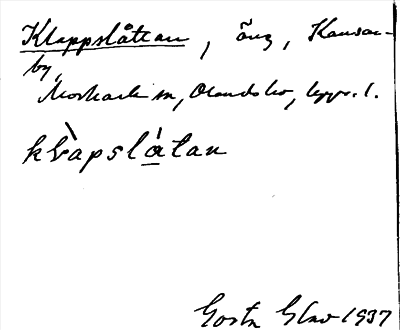 Klappslåttan, äng, Kansar-
by,
Morkarla sn, Olands hd, Uppl.
klapslåtan
Gösta 1937